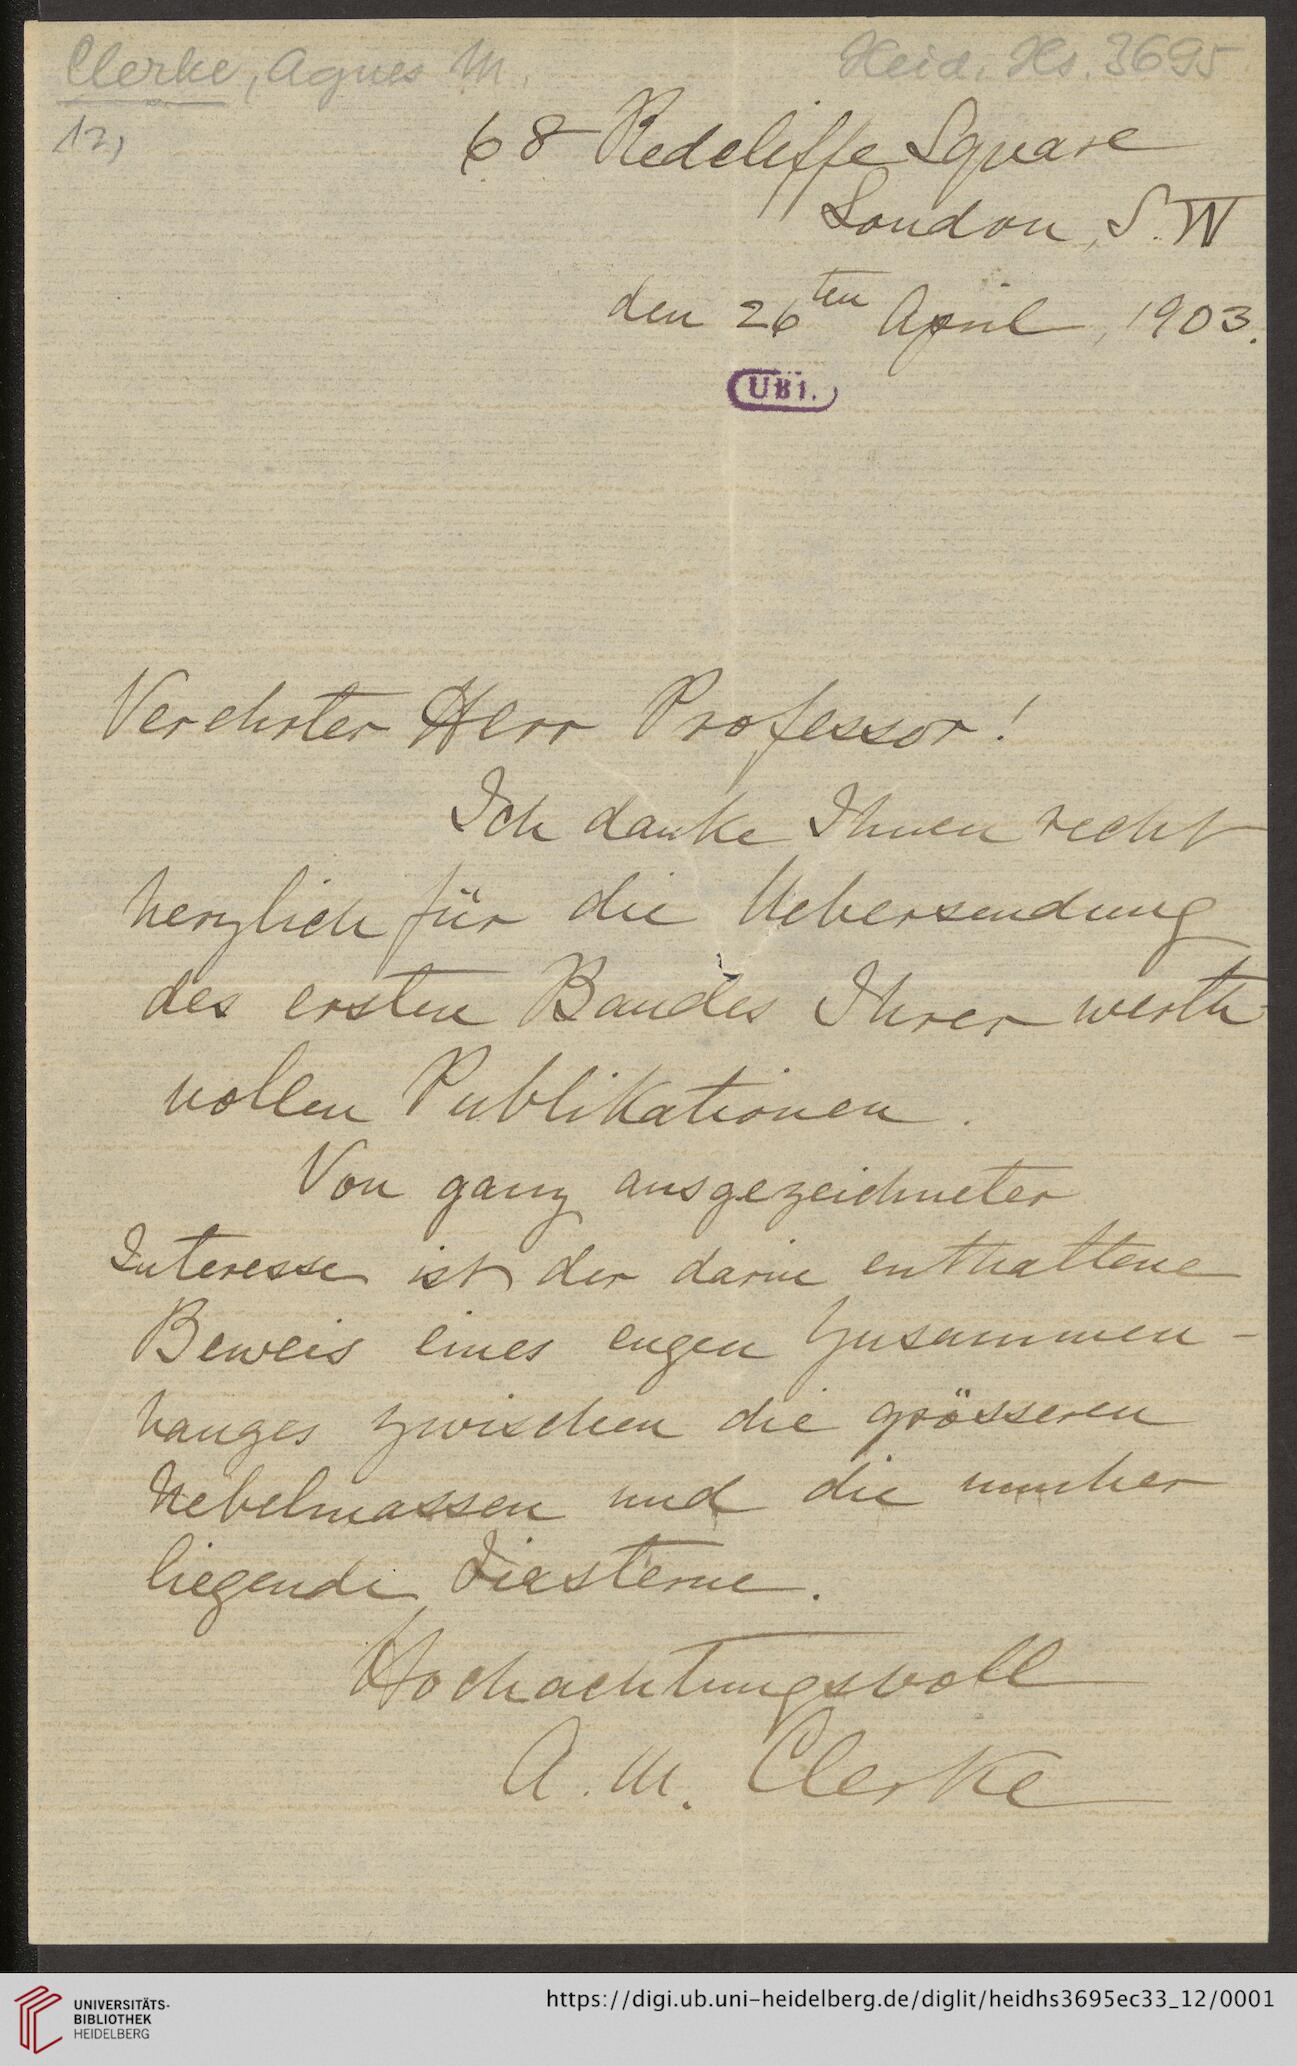 Clerke, Agnes M.
Heid. Hs. 3695
12,
68 Redcliffe Square
London, S. W
den 26ten April, 1903.
UBH.
Verehrter Herr Professor!
Ich danke Ihnen recht
herzlich für die Uebersendung
des ersten Bandes Ihrer werth
vollen Publikationen.
Von ganz ausgezeichneter
Interesse ist der darin enthaltene
Beweis eines engen Zusammen-
hanges zwischen die grösseren
Nebelmassen und die umher
liegende Fixsterne.
Hochachtungsvoll
A. M. Clerke
UNIVERSITÄTS-
BIBLIOTHEK
HEIDELBERG
https://digi.ub.uni-heidelberg.de/diglit/heidhs3695ec33_12/0001